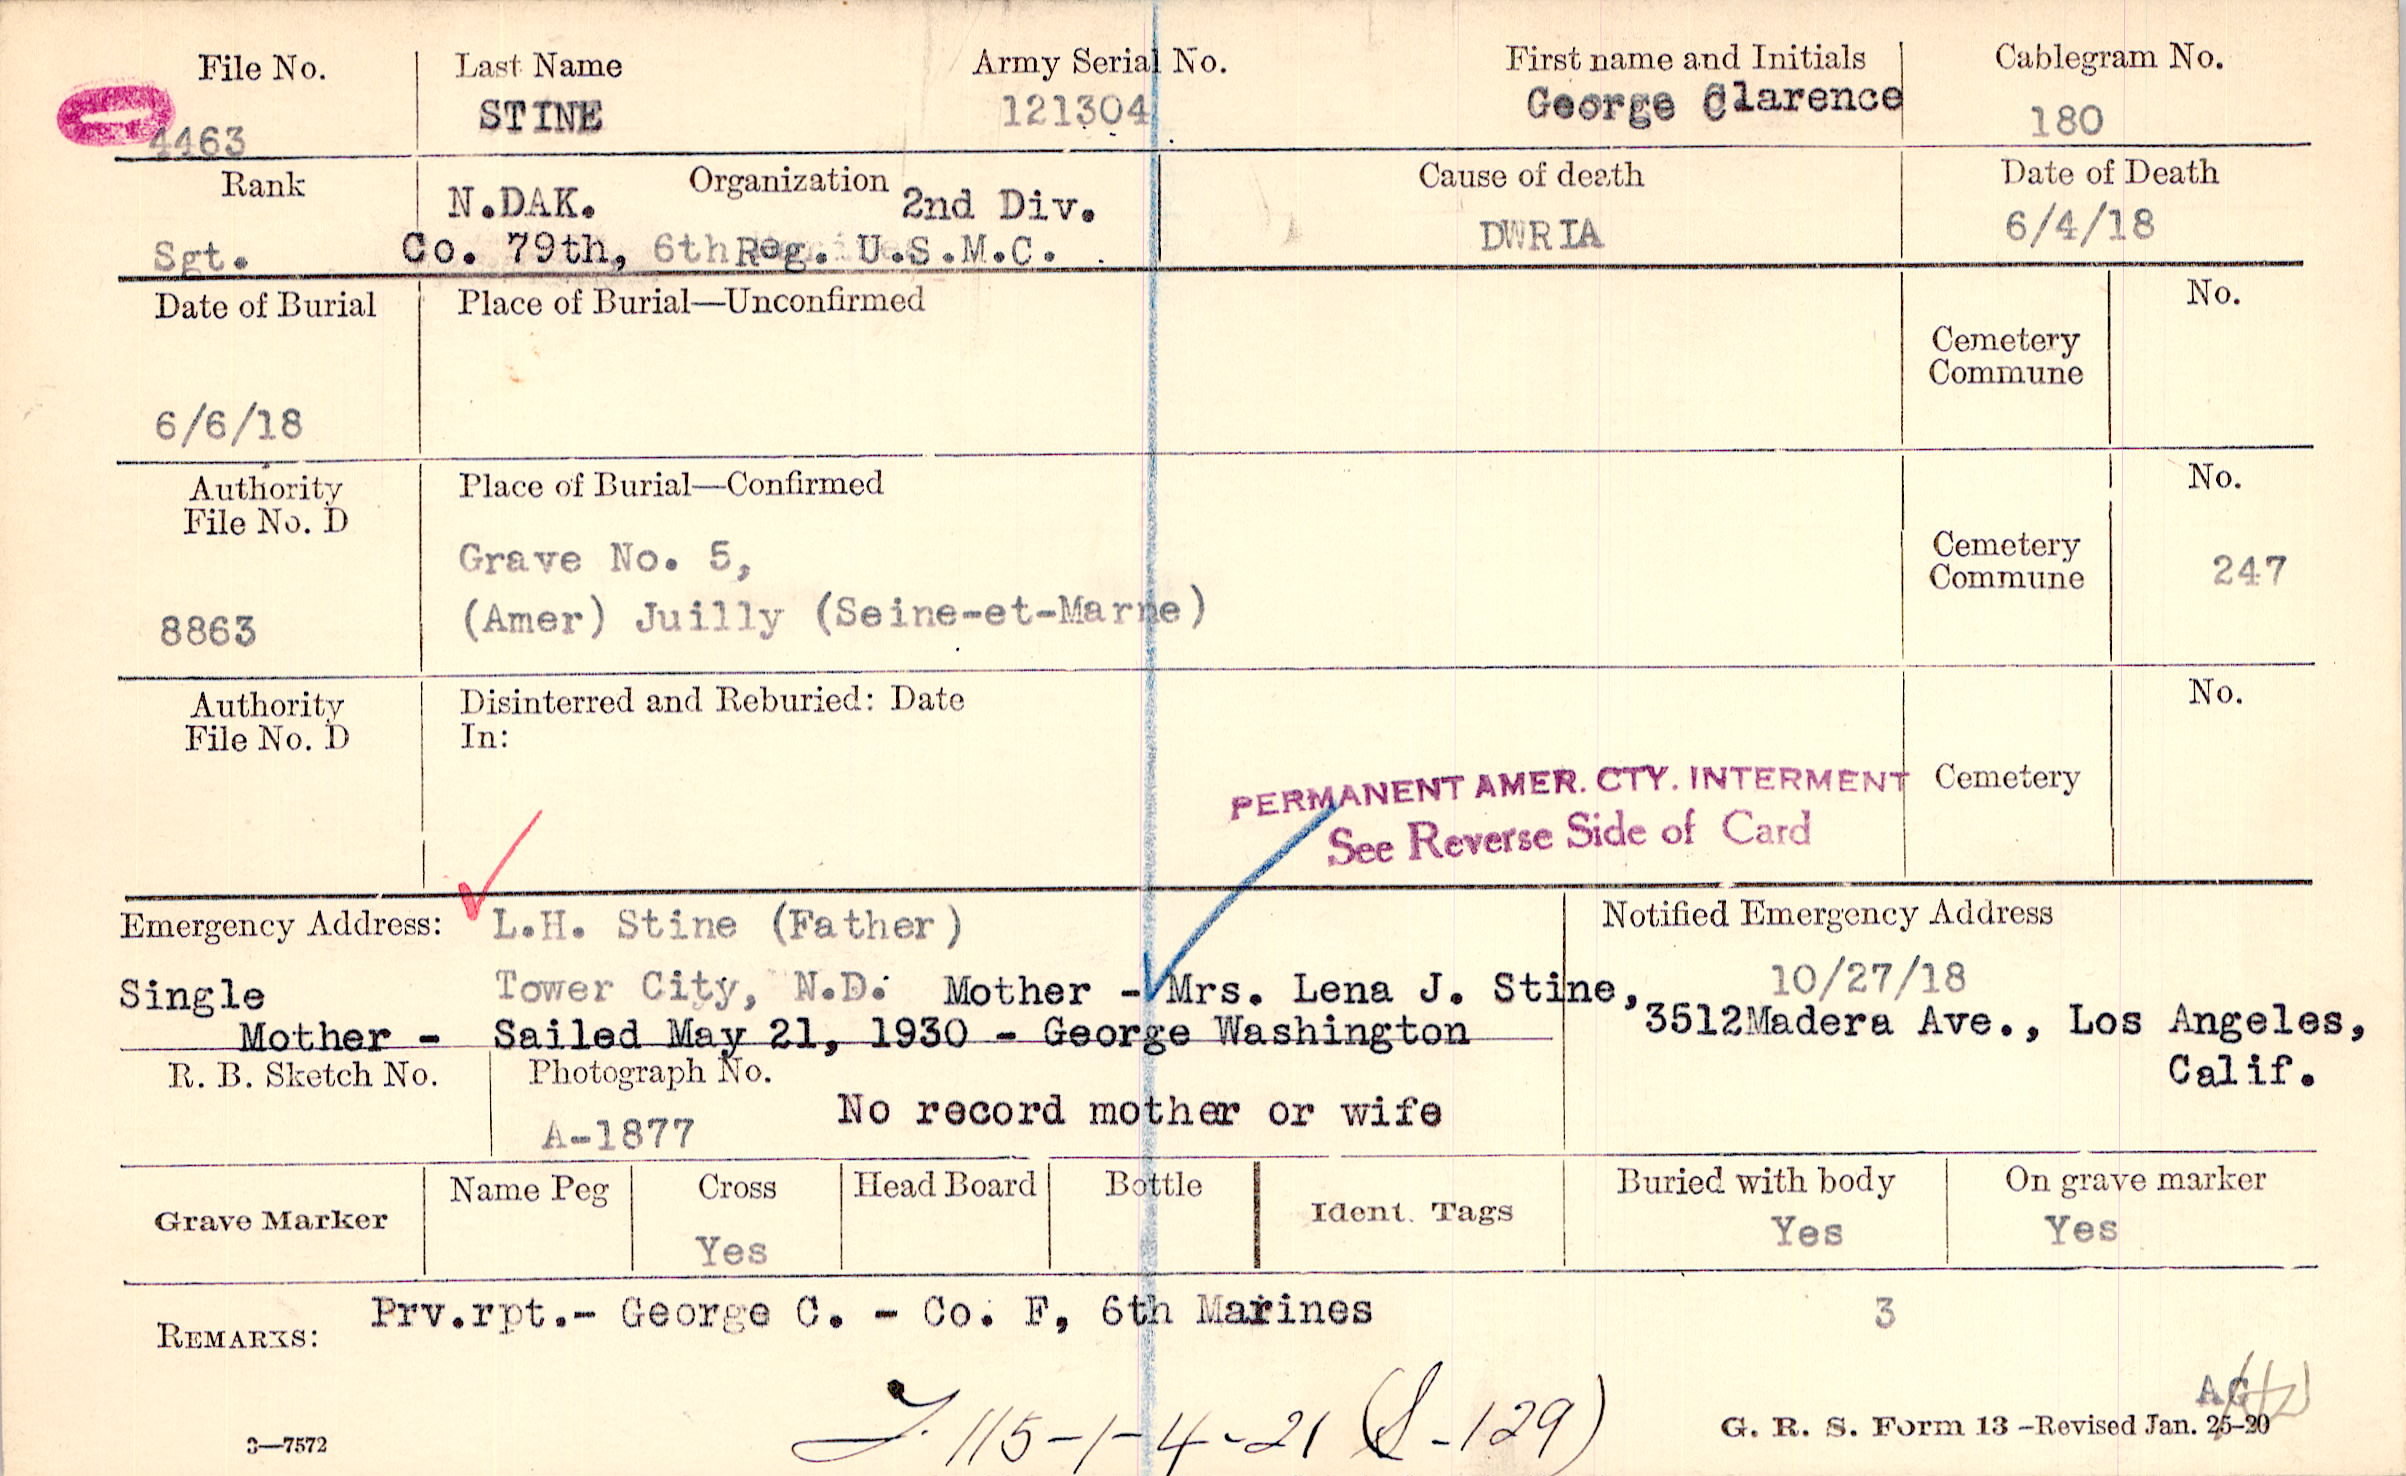 File No. Last Name Army Serial No. First name and Initials Cablegram No.
4463 STINE 121304 George Clarence 180
Rank Organization Cause of death Date of Death
N.DAK. 2nd Div. DWRIA 6/4/18
Sgt. Co. 79th, 6th Reg. U.S.M.C.
Date of Burial Place of Burial—Unconfirmed No.
Cemetery
Commune
6/6/18
Authority Place of Burial—Confirmed No.
File No. D
Grave No. 5, Cemetery
Commune 247
8863 (Amer) Juilly (Seine-et-Marne)
Authority Disinterred and Reburied: Date No.
File No. D In:
PERMANENT AMER. CTY. INTERMENT Cemetery
See Reverse Side of Card
Emergency Address: L.H. Stine (Father) Notified Emergency Address
Single Tower City, N.D. Mother - Mrs. Lena J. Stine, 10/27/18
3512Madera Ave., Los Angeles,
Calif.
Mother - Sailed May 21, 1930 - George Washington
R. B. Sketch No. Photograph No.
A-1877 No record mother or wife
Grave Marker Name Peg Cross Head Board Bottle Ident. Tags Buried with body On grave marker
Yes Yes Yes
REMARKS: Prv.rpt.- George C. - Co. F, 6th Marines 3
115-1-4-21 (S-129)
AG
3—7572 G. R. S. Form 13 -Revised Jan. 25-20